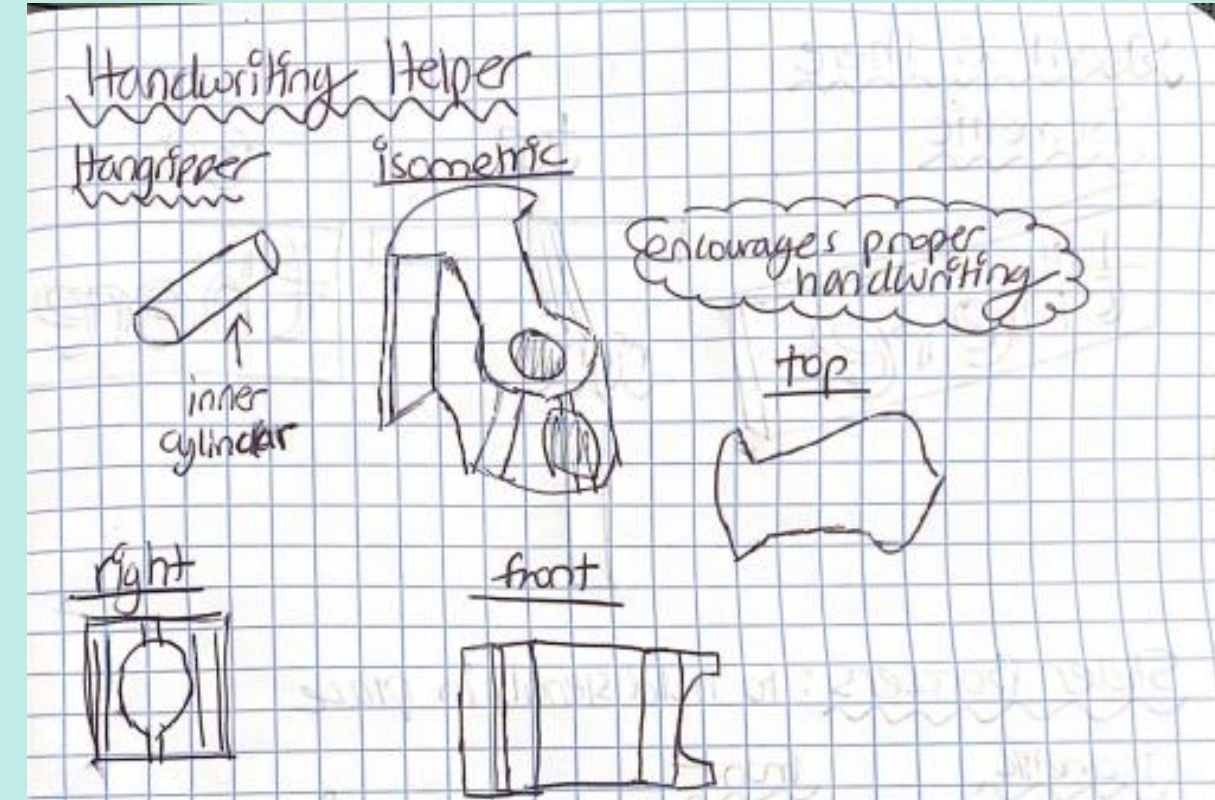 Handwriting Helper
Hangripper
isometric
encourages proper
handwriting
inner
cylinder
top
right
front